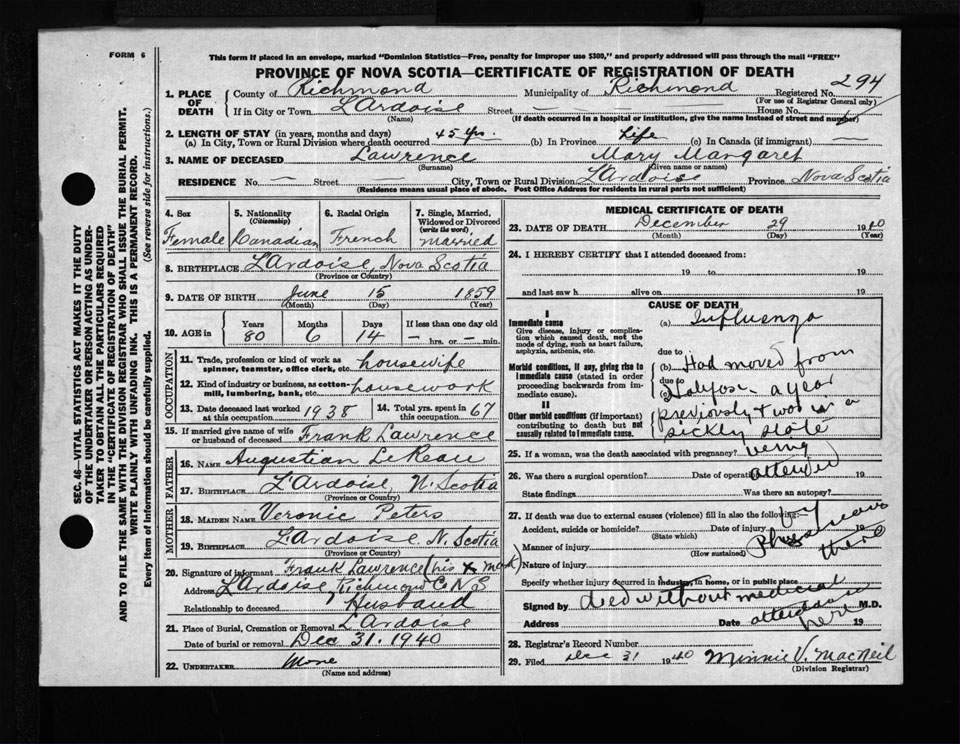 FORM 6
This form if placed in an envelope, marked "Dominion Statistics—Free, penalty for improper use $300," and properly addressed will pass through the mail "FREE"
PROVINCE OF NOVA SCOTIA—CERTIFICATE OF REGISTRATION OF DEATH
1. PLACE OF DEATH County of Richmond Municipality of Richmond Registered No. 294
(For use of Registrar General only)
If in City or Town L'Ardoise Street — House No.
(Name) (If death occurred in a hospital or institution, give the name instead of street and number)
2. LENGTH OF STAY (in years, months and days)
(a) In City, Town or Rural Division where death occurred 45 yrs. (b) In Province Life (c) In Canada (if immigrant) —
3. NAME OF DECEASED Lawrence Mary Margaret
(Surname) (Given name or names)
RESIDENCE No. — Street City, Town or Rural Division L'Ardoise Province Nova Scotia
(Residence means usual place of abode. Post Office Address for residents in rural parts not sufficient)
4. Sex Female
5. Nationality (Citizenship) Canadian
6. Racial Origin French
7. Single, Married, Widowed or Divorced (write the word) married
8. BIRTHPLACE L'Ardoise, Nova Scotia
(Province or Country)
9. DATE OF BIRTH June 15 1859
(Month) (Day) (Year)
10. AGE in Years 80 Months 6 Days 14 If less than one day old — hrs. or — min.
OCCUPATION
11. Trade, profession or kind of work as spinner, teamster, office clerk, etc. housewife
12. Kind of industry or business, as cotton-mill, lumbering, bank, etc. housework
13. Date deceased last worked at this occupation 1938
14. Total yrs. spent in this occupation 67
15. If married give name of wife or husband of deceased Frank Lawrence
FATHER
16. NAME Augustian
17. BIRTHPLACE L'Ardoise, N. Scotia
(Province or Country)
MOTHER
18. MAIDEN NAME Veronic Peters
19. BIRTHPLACE L'Ardoise N. Scotia
(Province or Country)
20. Signature of informant Frank Lawrence (his X mark)
Address L'Ardoise, Richmond Co N.S
Relationship to deceased Husband
21. Place of Burial, Cremation or Removal L'Ardoise
Date of burial or removal Dec 31. 1940
22. UNDERTAKER None
(Name and address)
MEDICAL CERTIFICATE OF DEATH
23. DATE OF DEATH December 29 1940
(Month) (Day) (Year)
24. I HEREBY CERTIFY that I attended deceased from:
19 to 19
and last saw h alive on 19
CAUSE OF DEATH
I
Immediate cause
Give disease, injury or complication which caused death, not the mode of dying, such as heart failure, asphyxia, asthenia, etc.
(a) Influenza
due to
Morbid conditions, if any, giving rise to immediate cause (stated in order proceeding backwards from immediate cause).
(b) Had moved from
due to
(c) a year
II
Other morbid conditions (if important) contributing to death but not causally related to immediate cause.
previously & was in a
sickly state
25. If a woman, was the death associated with pregnancy? being
26. Was there a surgical operation? Date of operation 19
attended
State findings Was there an autopsy?
27. If death was due to external causes (violence) fill in also the following: by
Accident, suicide or homicide? Date of injury 19
(State which)
Manner of injury physicians
(How sustained)
there
Nature of injury
Specify whether injury occurred in industry, in home, or in public place
Signed by died without medical M.D.
Address Date attendance 19
here
28. Registrar's Record Number
29. Filed Dec 31 1940 Minnie V. MacNeil
(Division Registrar)
SEC. 46—VITAL STATISTICS ACT MAKES IT THE DUTY
OF THE UNDERTAKER OR PERSON ACTING AS UNDER-
TAKER TO OBTAIN ALL THE PARTICULARS REQUIRED
IN THE "CERTIFICATE OF REGISTRATION OF DEATH"
AND TO FILE THE SAME WITH THE DIVISION REGISTRAR WHO SHALL ISSUE THE BURIAL PERMIT.
WRITE PLAINLY WITH UNFADING INK. THIS IS A PERMANENT RECORD.
Every item of information should be carefully supplied. (See reverse side for instructions.)